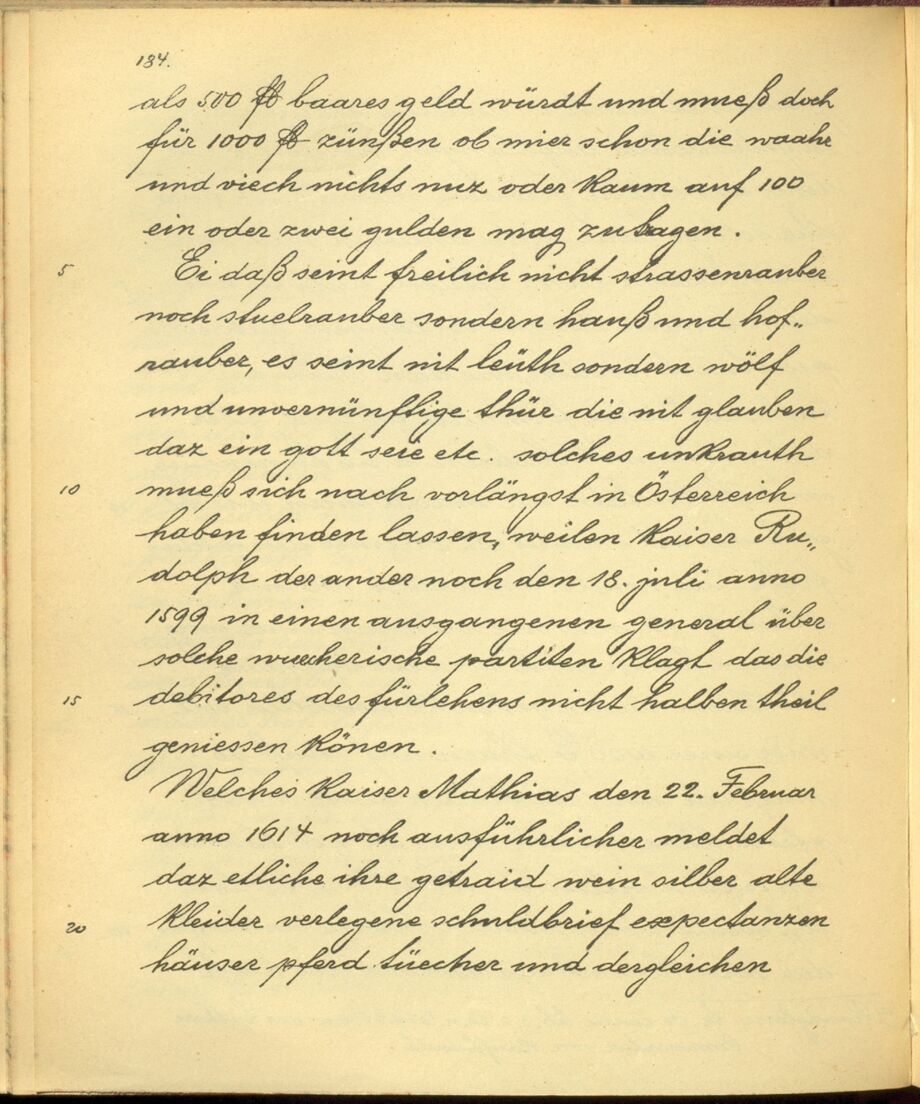 184.
als 500 ℔ baares geld würdt und mueß doch
für 1000 ℔ zünßen ob mier schon die waahr
und viech nichts nuz oder kaum auf 100
ein oder zwei gulden mag zu sagen.
5 Ei daß seint freilich nicht strassenrauber
noch stuelrauber sondern hauß und hof„
rauber, es seint nit leüth sondern wölf
und unvernünftige thür die nit glauben
daz ein gott seie etc. solches unkrauth
10 mueß sich nach vorlängst in Österreich
haben finden lassen, weilen kaiser Ru„
dolph der ander noch den 18. juli anno
1599 in einen ausgangenen general über
solche wuecherische partiten klagt das die
15 debitores des fürlehens nicht halben theil
geniessen könen.
Welches kaiser Mathias den 22. Februar
anno 1614 noch ausführlicher meldet
daz etliche ihre getraid wein silber alte
20 kleider verlegene schuldbrief expectanzen
häuser pferd tüecher und dergleichen